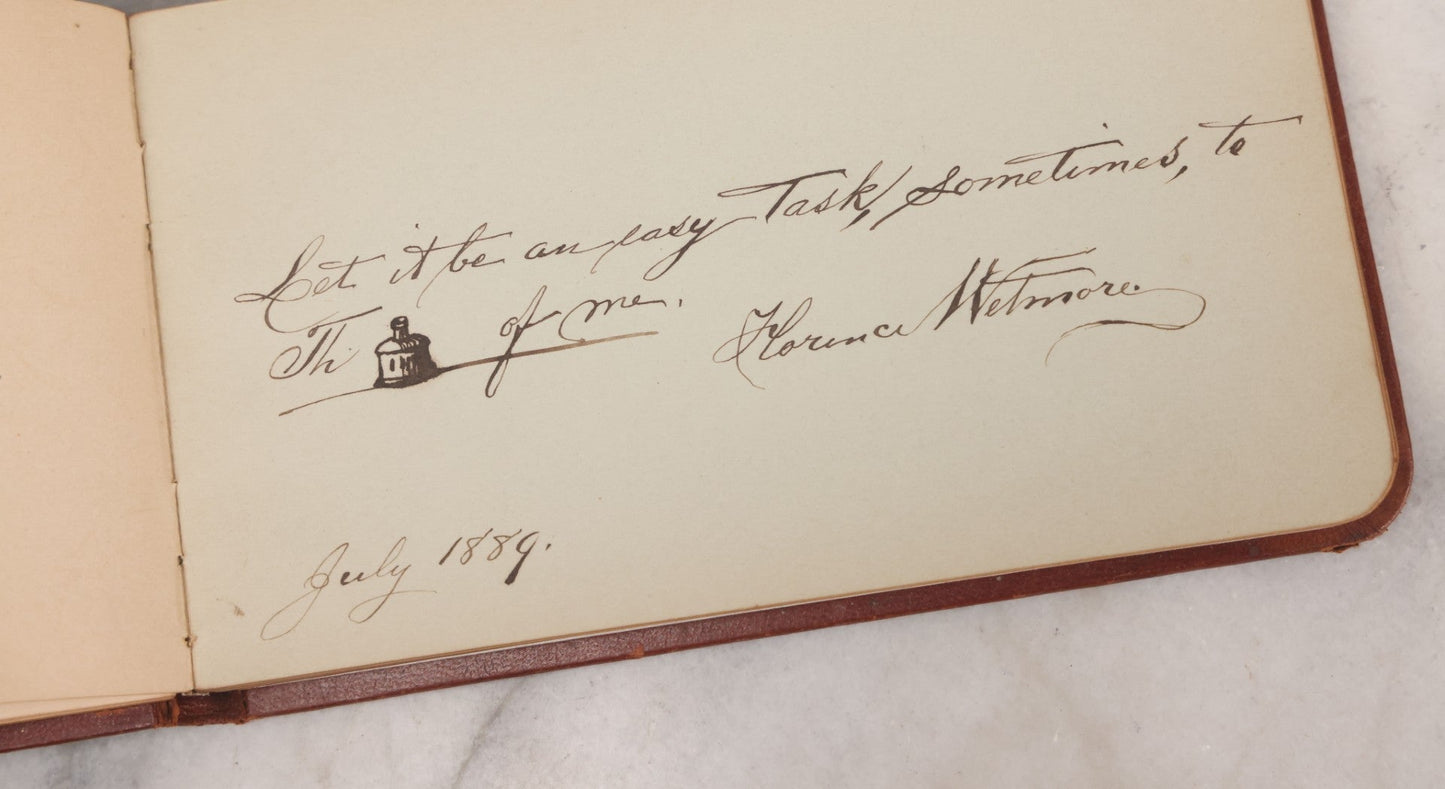 Let it be an easy Task, sometimes, to
Th INK of me.
Florence Wetmore.
July 1889.